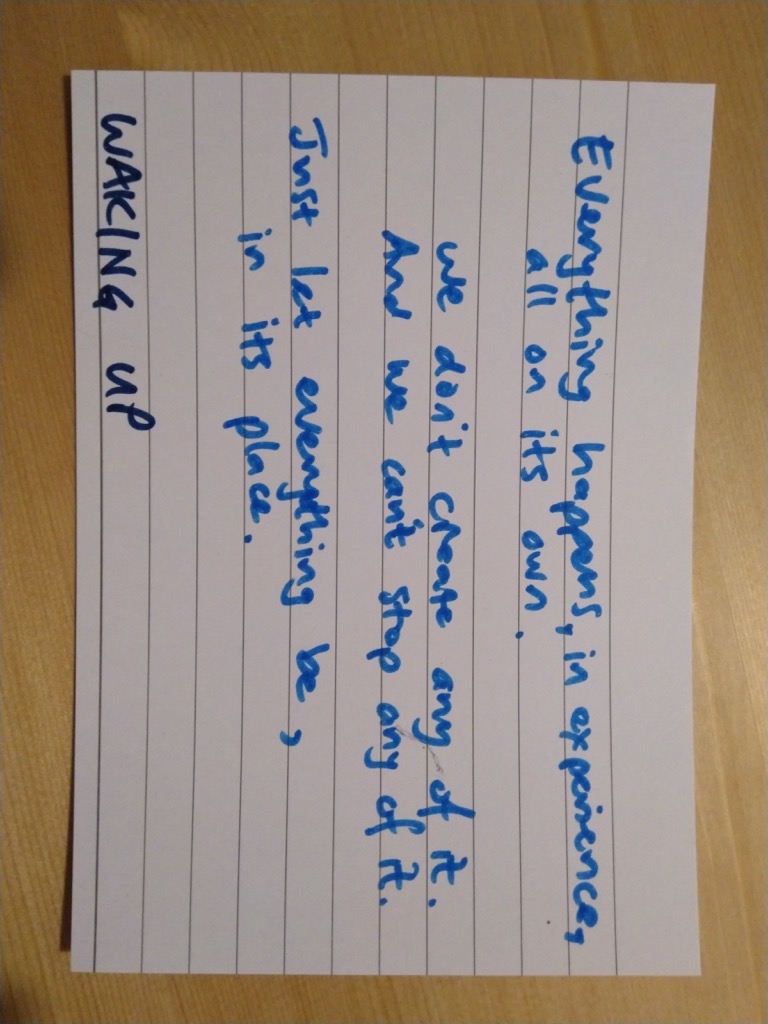 Everything happens, in experience,
all on its own.
We don't create any of it.
And we can't stop any of it.
Just let everything be,
in its place.
WAKING UP